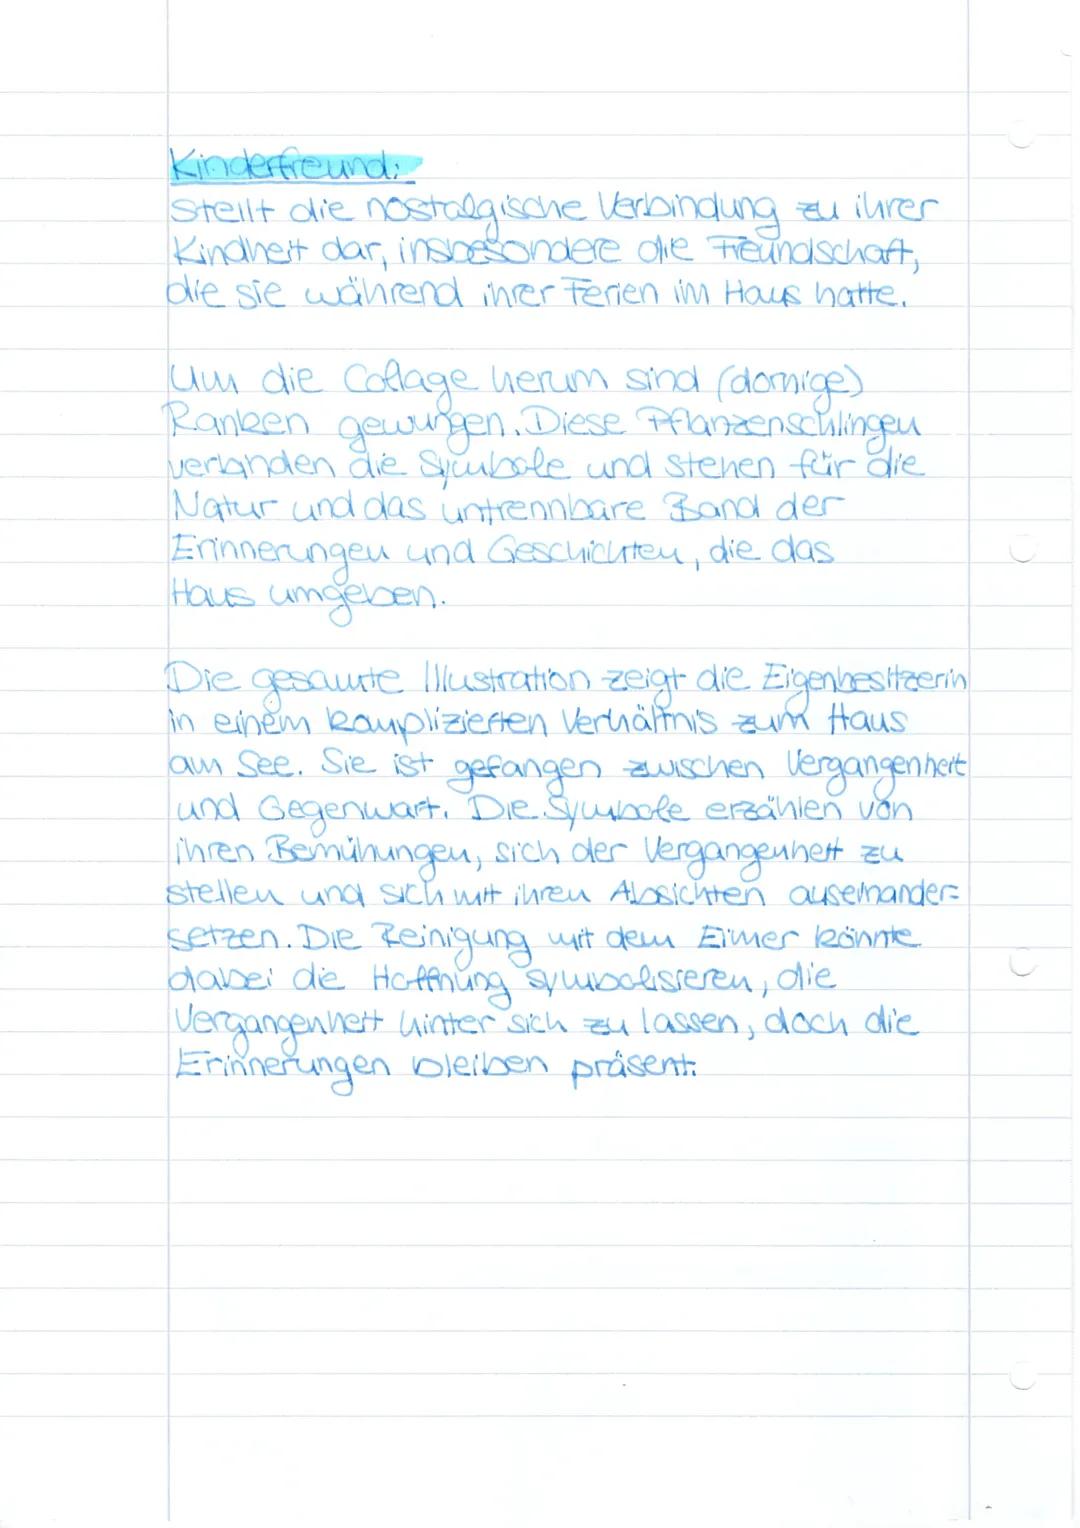 Kinderfreund:
Stellt die nostalgische Verbindung zu ihrer
Kindheit dar, insbesondere die Freundschaft,
die sie während ihrer Ferien im Haus hatte.
Um die Collage herum sind (dornige)
Ranken gewungen. Diese Pflanzenschlingen
verbinden die Symbole und stehen für die
Natur und das untrennbare Band der
Erinnerungen und Geschichten, die das
Haus umgeben.
Die gesamte Illustration zeigt die Eigenbesitzerin
in einem komplizierten Verhältnis zum Haus
am See. Sie ist gefangen zwischen Vergangenheit
und Gegenwart. Die Symbole erzählen von
ihren Bemühungen, sich der Vergangenheit zu
stellen und sich mit ihren Absichten auseinander=
setzen. Die Reinigung mit dem Eimer könnte
dabei die Hoffnung symbolisieren, die
Vergangenheit hinter sich zu lassen, doch die
Erinnerungen bleiben präsent.